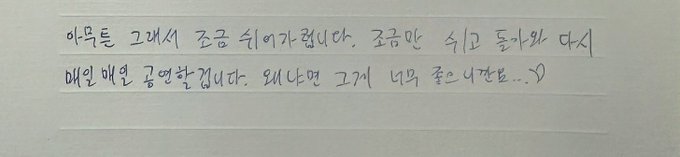 아무튼 그래서 조금 쉬어가렵니다. 조금만 쉬고 돌아와 다시
매일매일 공연할겁니다. 왜냐면 그게 너무 좋으니깐요...♡